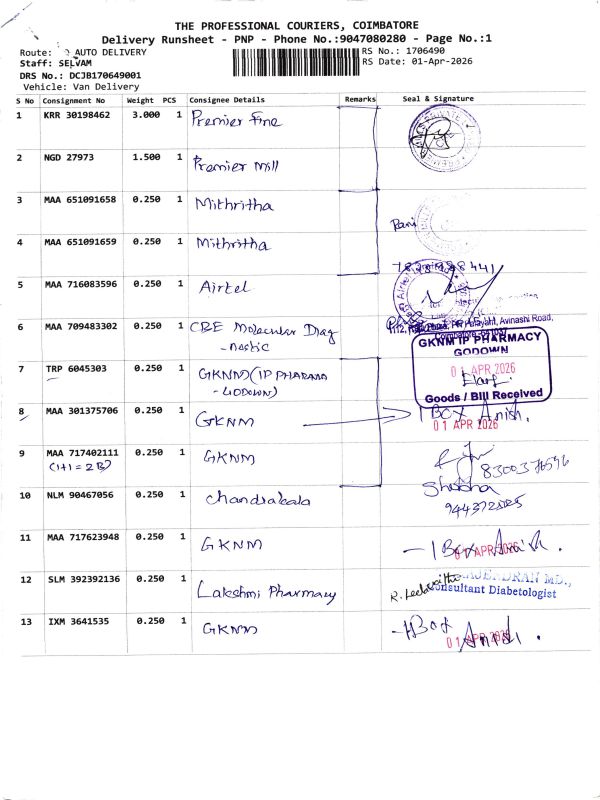 THE PROFESSIONAL COURIERS, COIMBATORE
Delivery Runsheet - PNP - Phone No.:9047080280 - Page No.:1
Route: AUTO DELIVERY
RS No.: 1706490
Staff: SELVAM
RS Date: 01-Apr-2026
DRS No.: DCJB170649001
Vehicle: Van Delivery
S No Consignment No Weight PCS Consignee Details Remarks Seal & Signature
1 KRR 30198462 3.000 1 Premier Fine
2 NGD 27973 1.500 1 Premier Mill
3 MAA 651091658 0.250 1 Mithritha
Rani
4 MAA 651091659 0.250 1 Mithritha
5 MAA 716083596 0.250 1 Airtel
Avinashi Road,
6 MAA 709483302 0.250 1 CBE Molecular Diag
-nostic
GKNM IP PHARMACY
GODOWN
7 TRP 6045303 0.250 1 GKNM(IP PHARMA
-GODOWN)
01 APR 2026
Goods / Bill Received
8 MAA 301375706 0.250 1 GKNM 1 Box Anish.
01 APR 2026
9 MAA 717402111 0.250 1 GKNM
(1+1=2B)
8300376596
10 NLM 90467056 0.250 1 Chandrakala
11 MAA 717623948 0.250 1 GKNM - 1 Box Anish.
12 SLM 392392136 0.250 1 Lakshmi Pharmacy
Consultant Diabetologist
13 IXM 3641535 0.250 1 GKNM - 1 Box Anish.
01 APR 2026